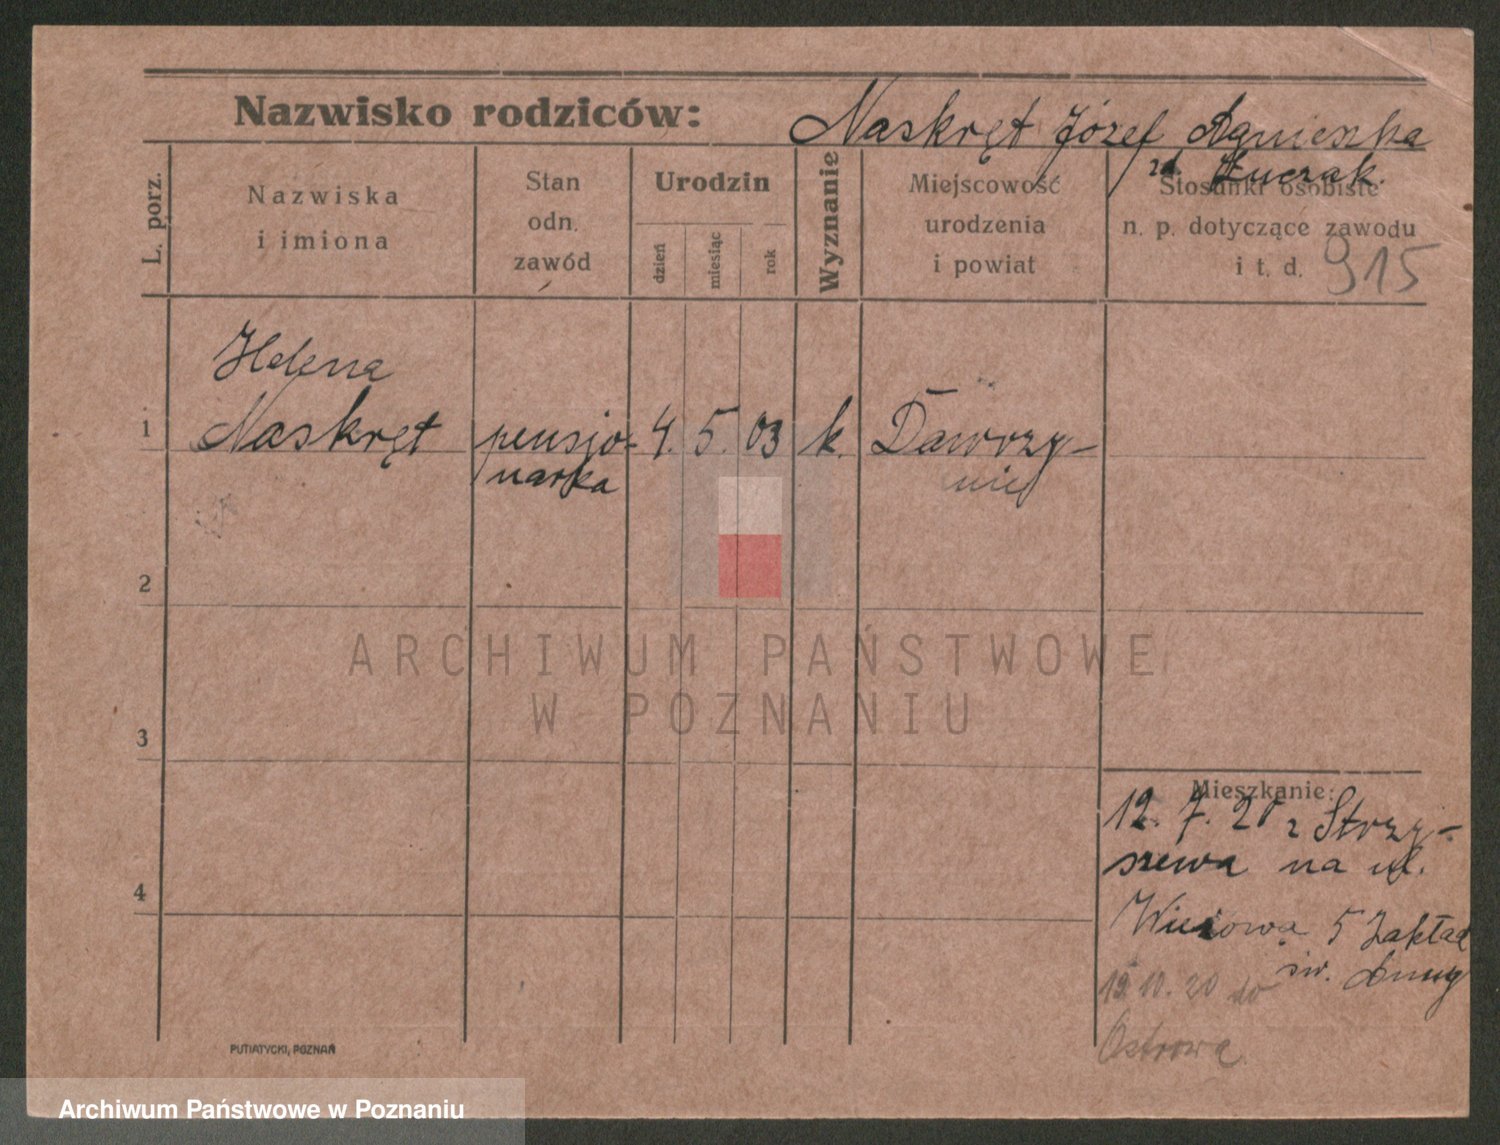 Nazwisko rodziców: Naskręt Józef Agnieszka
zd. Łuczak.
L. porz.
Nazwiska
i imiona
Stan
odn.
zawód
Urodzin
dzień
miesiąc
rok
Wyznanie
Miejscowość
urodzenia
i powiat
Stosunki osobiste
n. p. dotyczące zawodu
i t. d. 915
Helena
1 Naskręt pensjo- 4. 5. 03 k. Dawrzy-
narka nie
2
3
4
ARCHIWUM PAŃSTWOWE
W POZNANIU
Mieszkanie:
12. 7. 20 z Strzy-
szewa na ul.
5 Zakład
św. Anny
19. 10. 20 do
Ostrowa
PUTIATYCKI, POZNAŃ
Archiwum Państwowe w Poznaniu